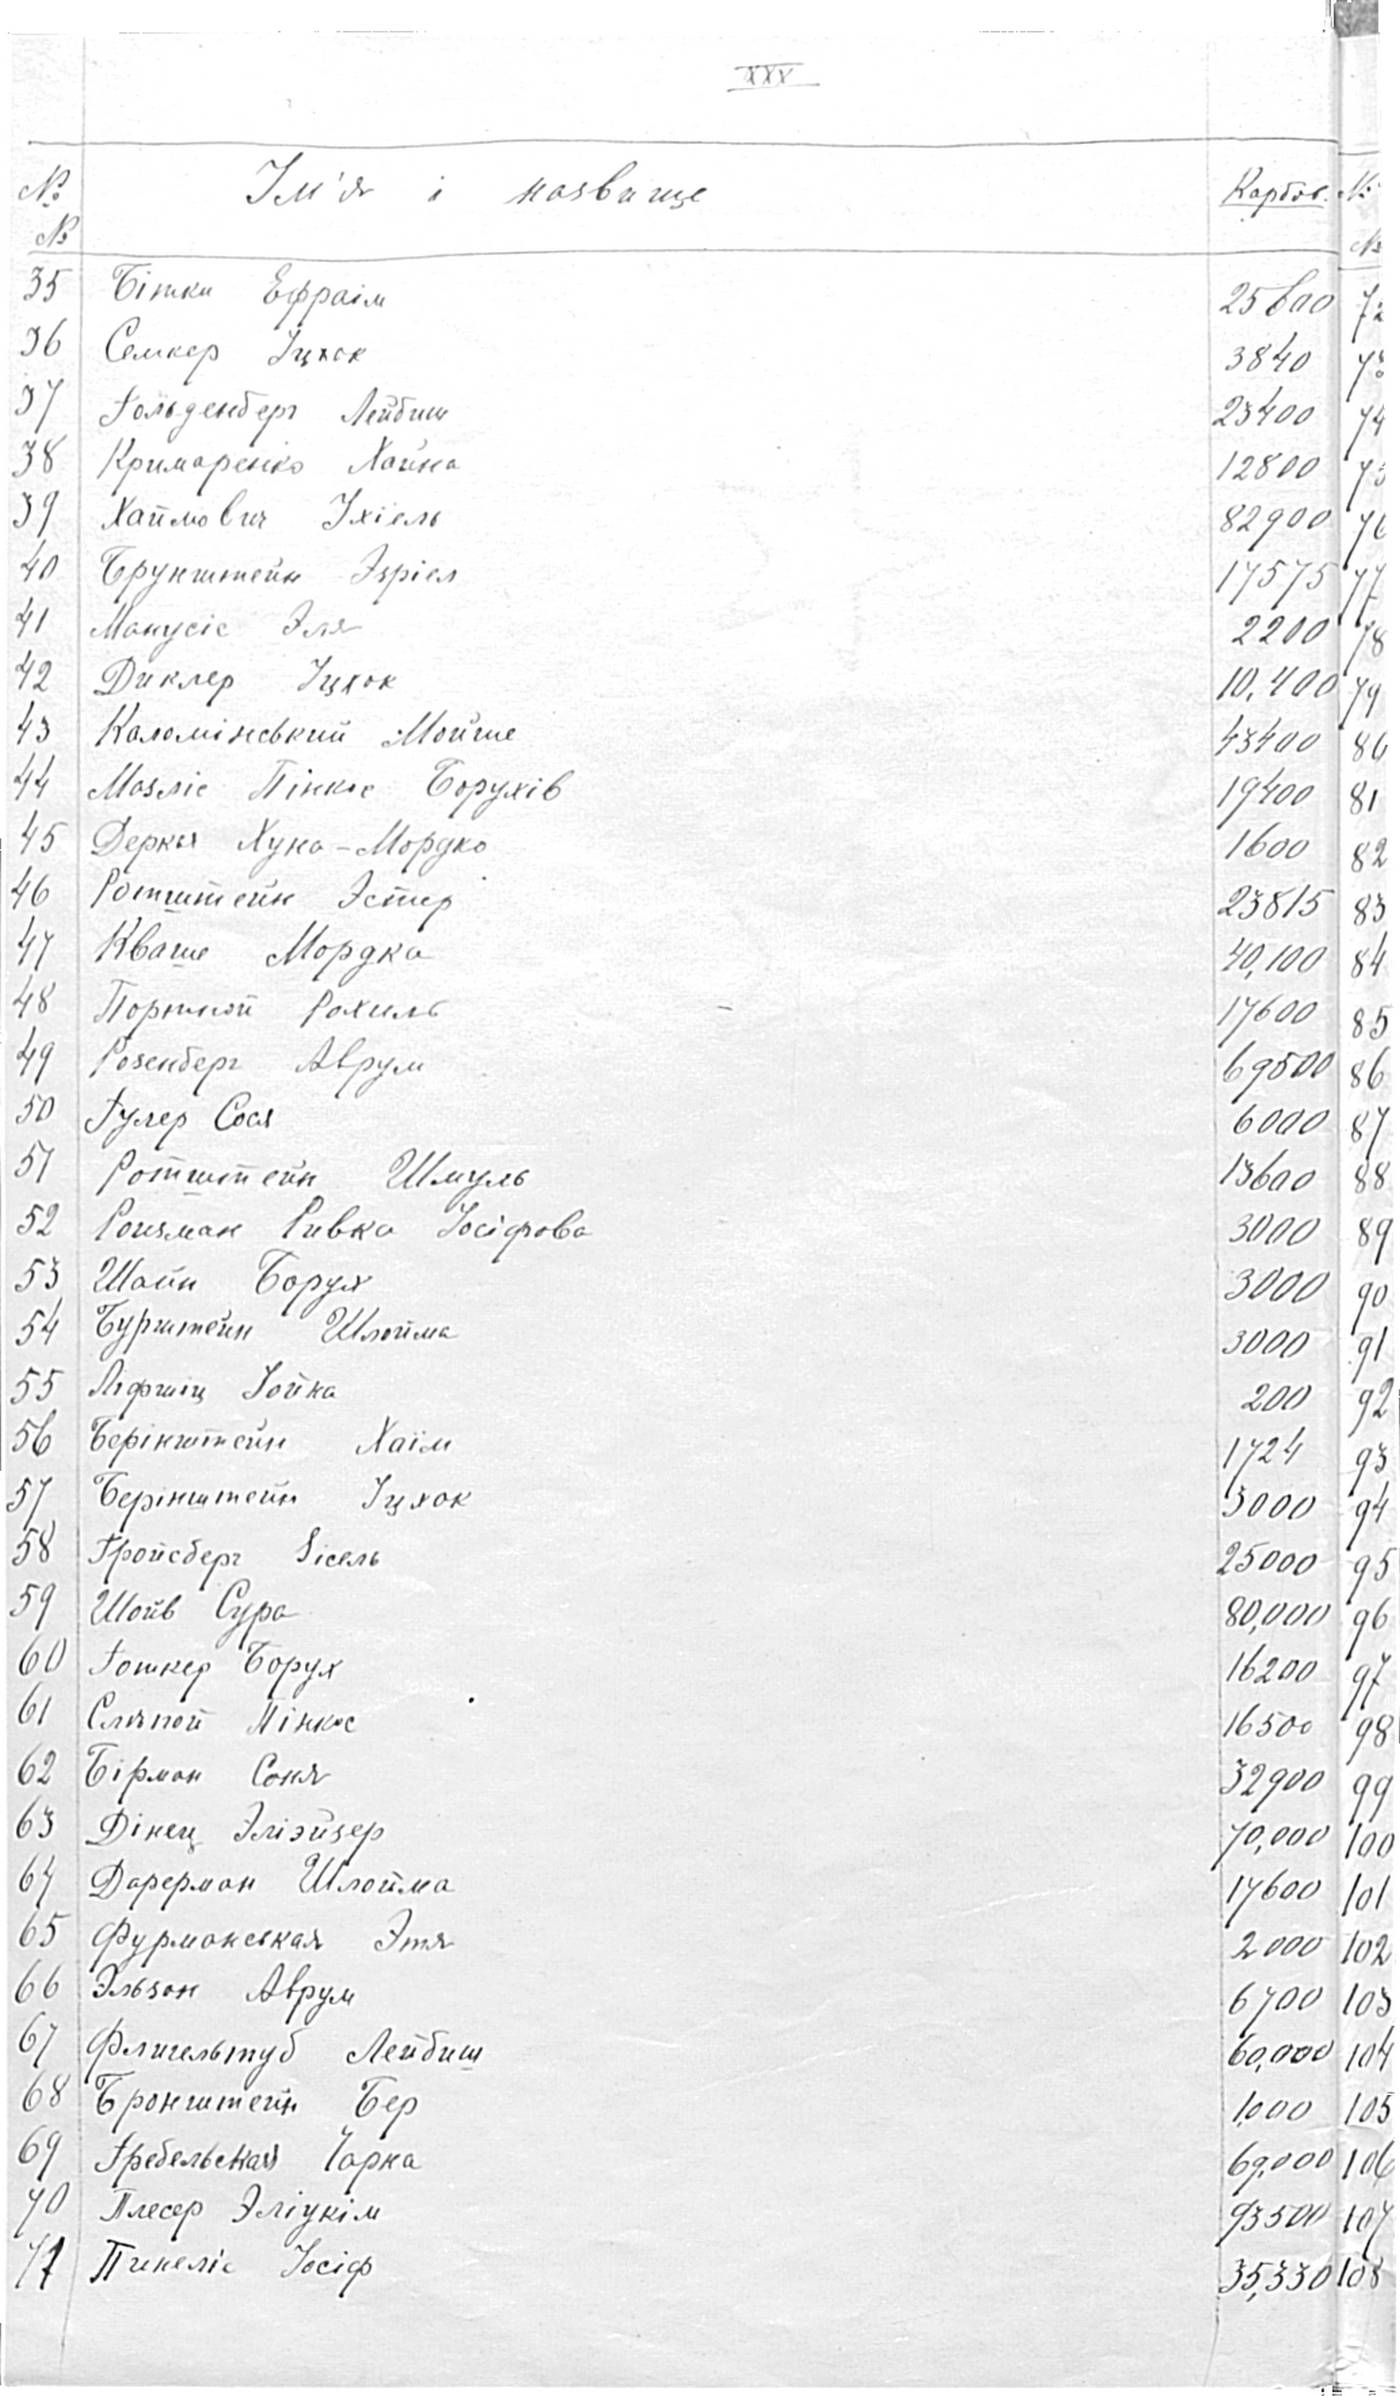 XXX
№ Ім'я і назвище Карбов. №
№ №
35 Бітки Ефраім 25600 72
36 Семкер Іцхок 3840 73
37 Гольденберг Лейбиш 23400 74
38 Кримаренко Хайна 12800 75
39 Хаймович Іхіель 82900 76
40 Брунштейн Эзріел 17575 77
41 Манусіс Эля 2200 78
42 Диклер Іцхок 10,400 79
43 Коломінський Мойше 43400 80
44 Мазліс Пінкос Борухів 19400 81
45 Держи Хуна-Мордко 1600 82
46 Ротштейн Эстер 23815 83
47 Кваше Мордка 40,100 84
48 Портной Рохиль 17600 85
49 Розенберг Аврум 69500 86
50 Гулер Сося 6000 87
51 Ротштейн Шмуль 13600 88
52 Ройзман Ривка Іосіфова 3000 89
53 Шайн Борух 3000 90
54 Бурштейн Шлойма 3000 91
55 Ліфшіц Іойна 200 92
56 Берінштейн Хаїм 1724 93
57 Берінштейн Іцхок 3000 94
58 Гройсберг Зісель 25000 95
59 Шойв Сура 80,000 96
60 Готкер Борух 16200 97
61 Сляпой Пінкос 16500 98
62 Бірман Соня 32900 99
63 Дінец Элізйзер 70,000 100
64 Дарерман Шлойма 17600 101
65 Фурманськая Этя 2000 102
66 Эльзон Аврум 6700 103
67 Флигельтуб Лейбиш 60,000 104
68 Бронштейн Бер 1,000 105
69 Гребельская Чарна 69,000 106
70 Плесер Эліукім 93500 107
71 Пинеліс Іосіф 35,330 108